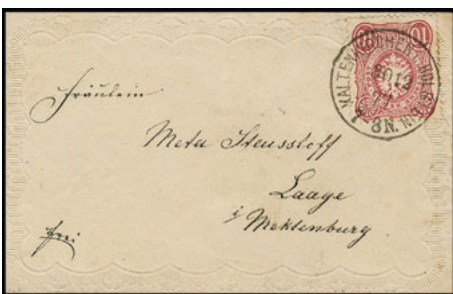 10
KALTENKIRCHEN
30 12
8 N.
Fräulein
Meta Steussloff
Laage
i/ Meklenburg
frei